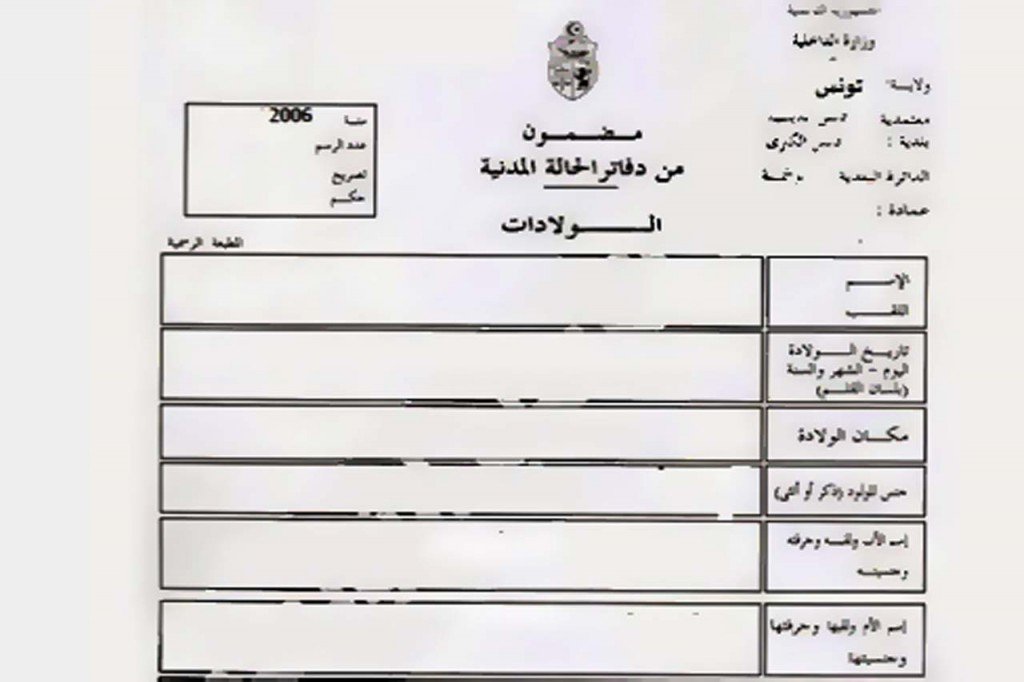 الجمهورية التونسية
وزارة الداخلية
ولاية تونس
معتمدية تونس
بلدية : تونس الكبرى
الدائرة البلدية
عمادة :
مضمون
من دفاتر الحالة المدنية
الولادات
سنة 2006
عدد الرسم
تصريح
حكم
المطبعة الرسمية
الإسم
اللقب
تاريخ الولادة
اليوم - الشهر والسنة
(بلسان القلم)
مكان الولادة
جنس المولود (ذكر أو أنثى)
إسم الأب ولقبه وحرفته
وجنسيته
إسم الأم ولقبها وحرفتها
وجنسيتها